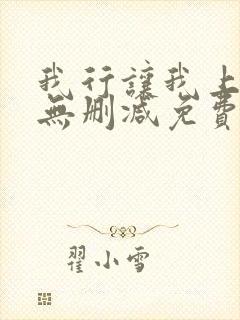 我行讓我上
無刪減免費
翟小雪